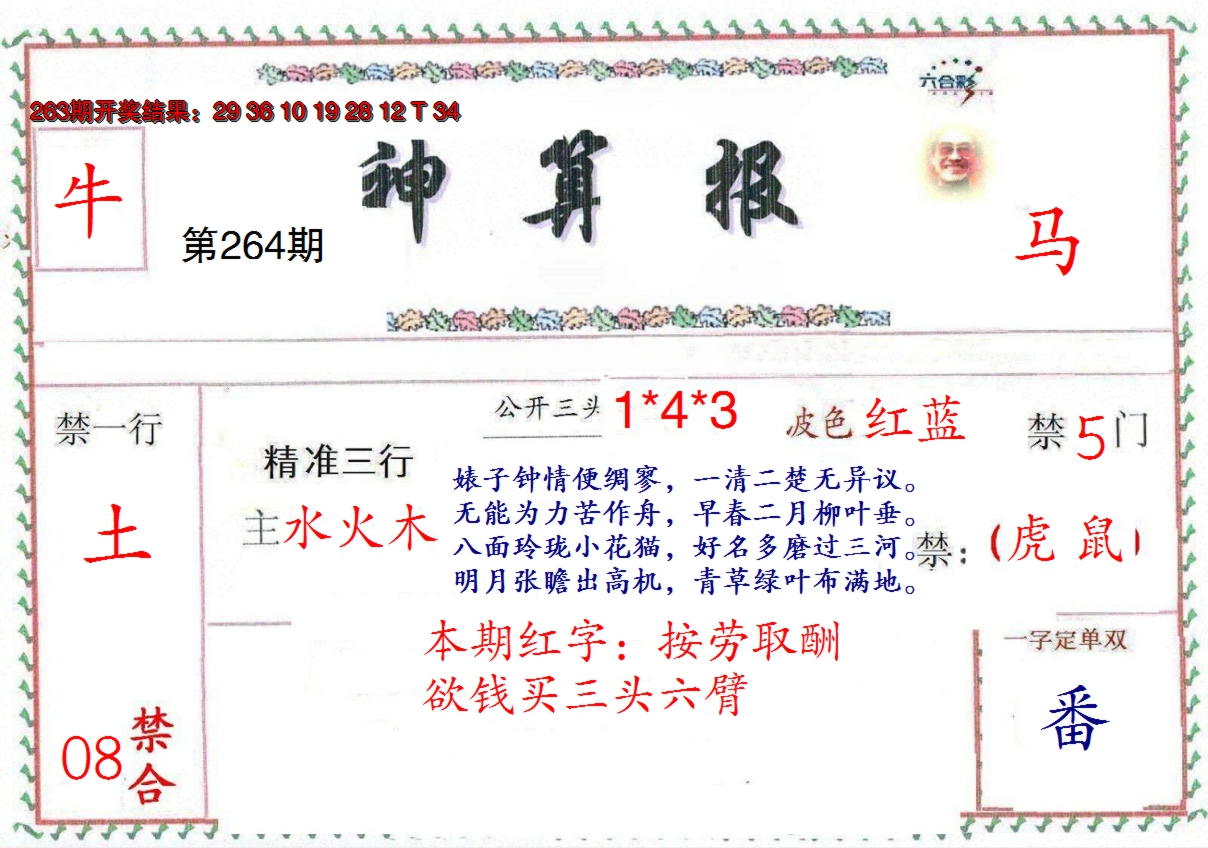 六合彩
263期开奖结果：29 36 10 19 28 12 T 34
神算报
牛
第264期
马
禁一行
土
08
禁合
公开三头 1*4*3
波色 红蓝
禁5门
精准三行
主水火木
婊子钟情便绸寥，一清二楚无异议。
无能为力苦作舟，早春二月柳叶垂。
八面玲珑小花猫，好名多磨过三河。
明月张瞻出高机，青草绿叶布满地。
禁：（虎 鼠）
本期红字：按劳取酬
欲钱买三头六臂
一字定单双
番